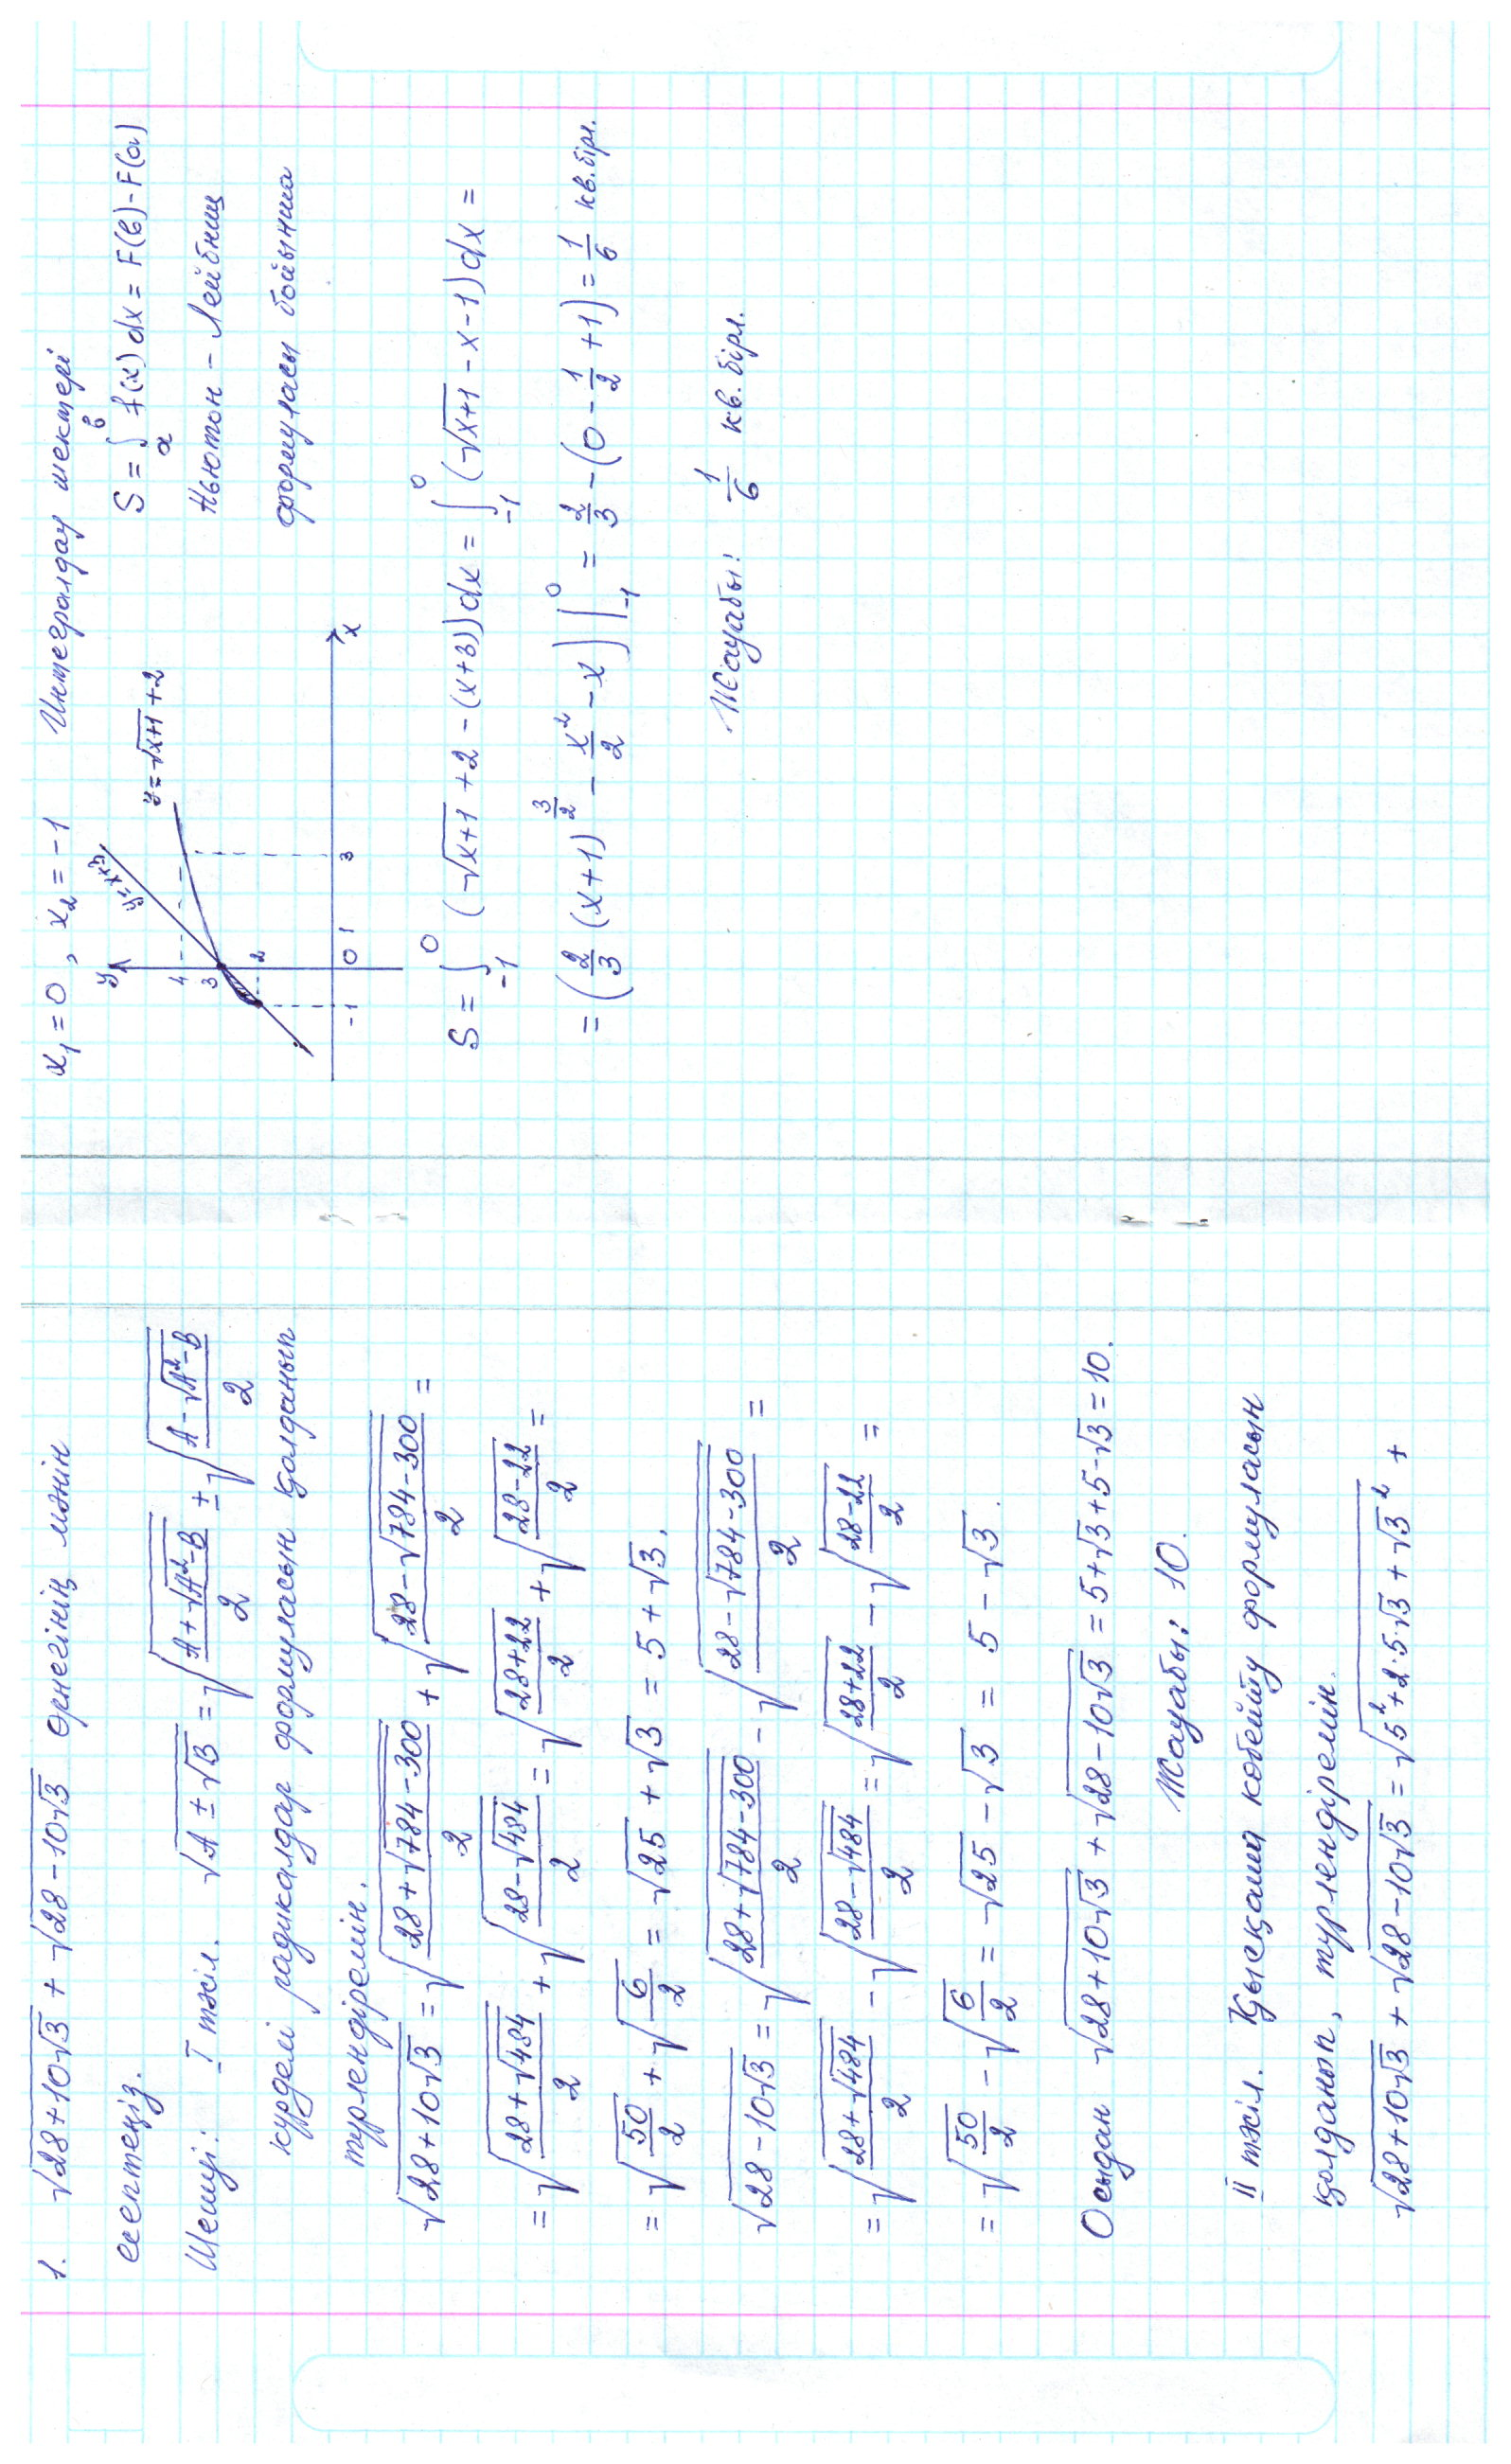 1. √(28+10√3) + √(28−10√3) өрнегінің мәнін
есептеңіз.
Шешуі: I тәсіл. √(A±√B) = √((A+√(A²−B))/2) ± √((A−√(A²−B))/2)
күрделі радикалдар формуласын қолданып
түрлендіремін.
√(28+10√3) = √((28+√(784−300))/2) + √((28−√(784−300))/2) =
= √((28+√484)/2) + √((28−√484)/2) = √((28+22)/2) + √((28−22)/2) =
= √(50/2) + √(6/2) = √25 + √3 = 5+√3.
√(28−10√3) = √((28+√(784−300))/2) − √((28−√(784−300))/2) =
= √((28+√484)/2) − √((28−√484)/2) = √((28+22)/2) − √((28−22)/2) =
= √(50/2) − √(6/2) = √25 − √3 = 5 − √3.
Осыдан √(28+10√3) + √(28−10√3) = 5+√3+5−√3 = 10.
Жауабы: 10.
II тәсіл. Қысқаша көбейту формуласын
қолданып, түрлендіремін.
√(28+10√3) + √(28−10√3) = √(5²+2·5·√3+√3²) +
x₁=0, x₂=−1 Интегралдау шектері
y
y=x+3
y=√(x+1)+2
4
3
2
−1 0 1 3 x
S = ∫ₐᵇ f(x)dx = F(b)−F(a)
Ньютон – Лейбниц
формуласы бойынша
S = ∫₋₁⁰ (√(x+1)+2−(x+3))dx = ∫₋₁⁰ (√(x+1)−x−1)dx =
= (2/3 (x+1)^(3/2) − x²/2 − x)|₋₁⁰ = 2/3 − (0 − 1/2 + 1) = 1/6 кв.бірл.
Жауабы: 1/6 кв.бірл.